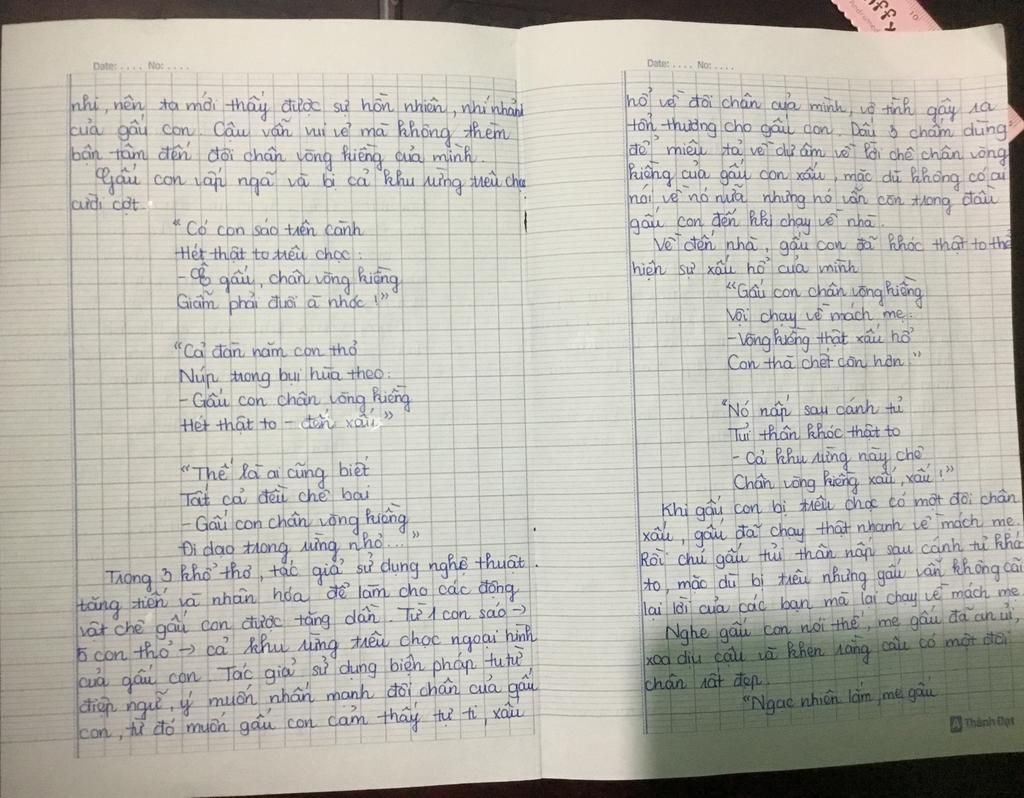 Date: .... No: ....
nhi, nên ta mới thấy được sự hồn nhiên, nhí nhảnh
của gấu con. Cậu vẫn vui vẻ mà không thèm
bận tâm đến đôi chân vòng kiềng của mình.
Gấu con vấp ngã và bị cả khu rừng trêu chọc
cười cợt.
"Có con sáo trên cành
Hét thật to trêu chọc:
- Ê gấu, chân vòng kiềng
Giẫm phải đuôi à nhóc!"
"Cả đàn năm con thỏ
Núp trong bụi hùa theo:
- Gấu con chân vòng kiềng
Hét thật to - đến xấu"
"Thế là ai cũng biết
Tất cả đều chê bai
- Gấu con chân vòng kiềng
Đi dạo trong rừng nhỏ..."
Trong 3 khổ thơ, tác giả sử dụng nghệ thuật
tăng tiến và nhân hóa để làm cho các động
vật chê gấu con được tăng dần. Từ 1 con sáo →
5 con thỏ → cả khu rừng trêu chọc ngoại hình
của gấu con. Tác giả sử dụng biện pháp tu từ
điệp ngữ, ý muốn nhấn mạnh đôi chân của gấu
con, từ đó muốn gấu con cảm thấy tự ti, xấu
Date: .... No: ....
hổ về đôi chân của mình, vô tình gây ra
tổn thương cho gấu con. Dấu 3 chấm dùng
để miêu tả về dư âm về lời chê chân vòng
kiềng của gấu con xấu, mặc dù không có ai
nói về nó nữa nhưng nó vẫn còn trong đầu
gấu con đến khi chạy về nhà.
Về đến nhà, gấu con đã khóc thật to thể
hiện sự xấu hổ của mình
"Gấu con chân vòng kiềng
Vội chạy về mách mẹ:
- Vòng kiềng thật xấu hổ
Con thà chết còn hơn."
"Nó nấp sau cánh tủ
Tủi thân khóc thật to
- Cả khu rừng này chê
Chân vòng kiềng xấu, xấu!"
Khi gấu con bị trêu chọc có một đôi chân
xấu, gấu đã chạy thật nhanh về mách mẹ.
Rồi chú gấu tủi thân nấp sau cánh tủ khá
to, mặc dù bị trêu nhưng gấu vẫn không cãi
lại lời của các bạn mà lại chạy về mách mẹ
Nghe gấu con nói thế, mẹ gấu đã an ủi,
xoa dịu cậu và khen rằng cậu có một đôi
chân rất đẹp.
"Ngạc nhiên lắm, mẹ gấu
Thành Đạt